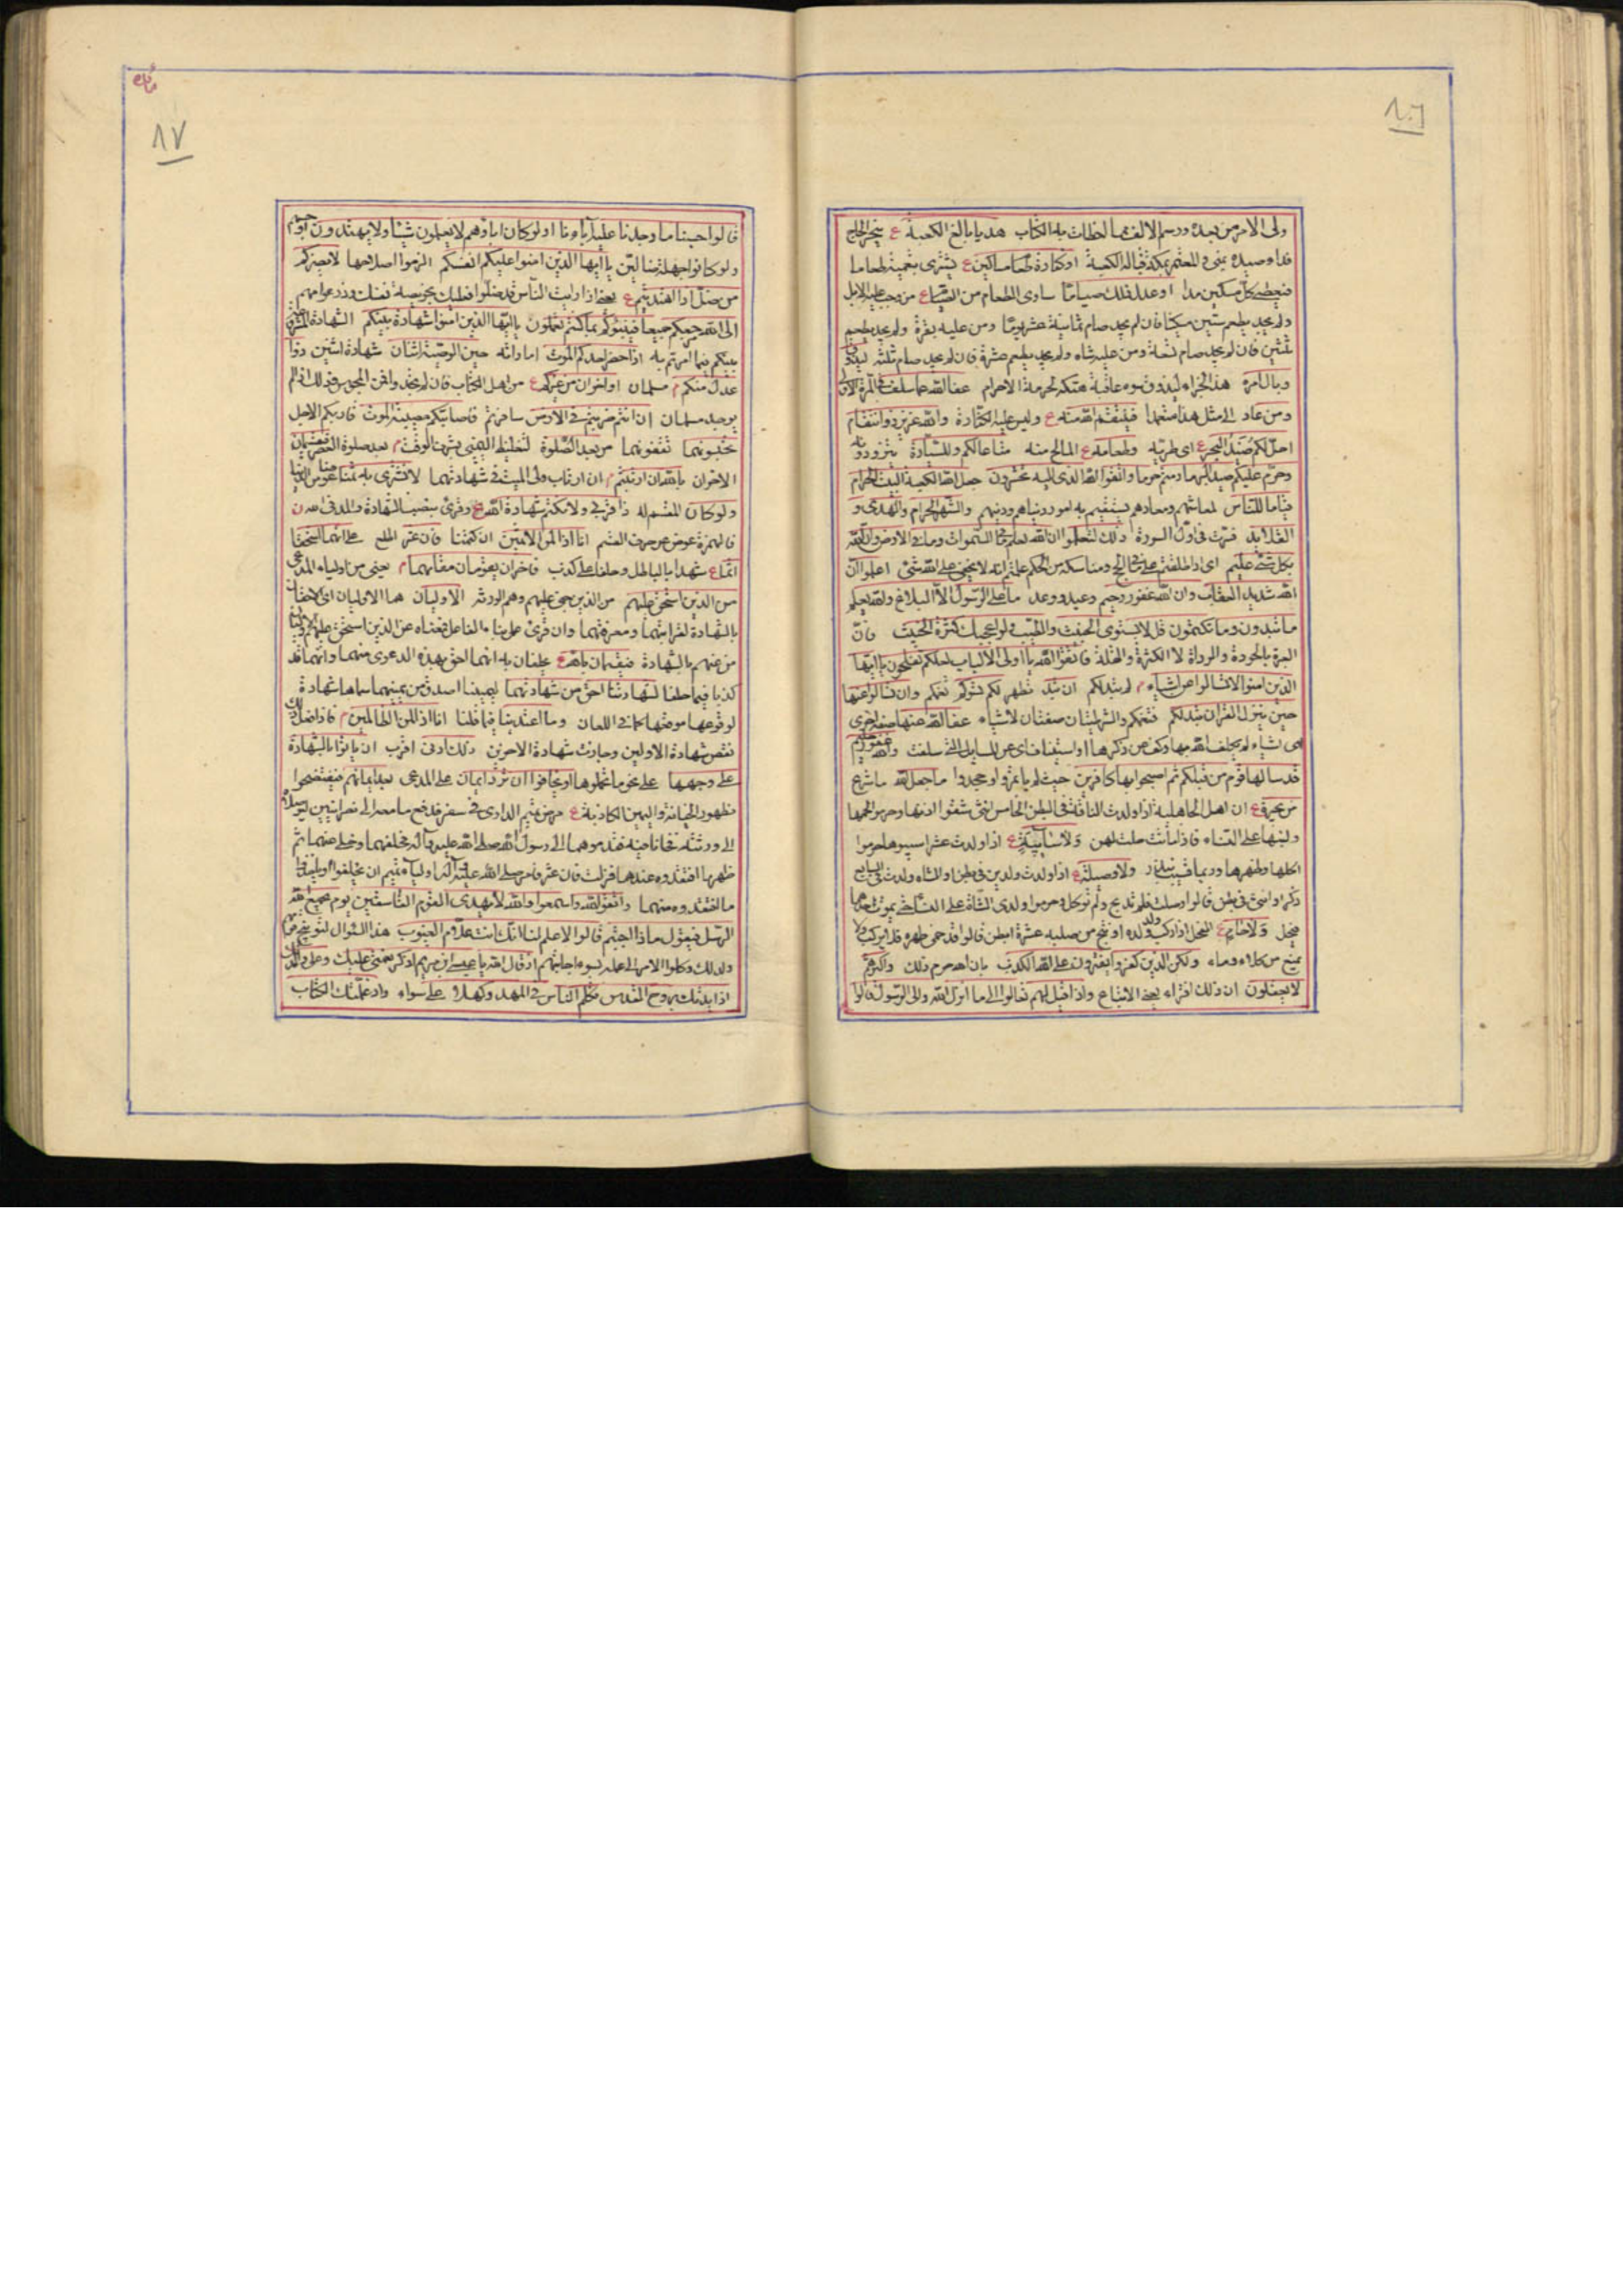 ١٠٦
ولى الامر من بعده ورسم الالف مما لخطات به الكتاب هديا بالغ الكعبة ع ينحر الحاج
فداء صيده بمنى والمعتمر بمكة قبالة الكعبة او كفارة طعام مساكين ع يشترى بقيمته طعاما
فيعطى كل مسكين مدا او عدل ذلك صياما ساوى الطعام من الصيام ع من وجب عليه الابل
ولم يجد يطعم ستين مسكينا فان لم يجد صام ثمانية عشر يوما ومن عليه بقرة ولم يجد يطعم
ثلثين فان لم يجد صام تسعة ومن عليه شاه ولم يجد يطعم عشرة فان لم يجد صام ثلثه ليذوق
وبال امره هذا الجزاء ليذوق سوء عاقبة هتكه لحرمة الاحرام عفا الله عما سلف فى المرة الاولى
ومن عاد الى مثل هذا متعمدا فينتقم الله منه ع وليس عليه الكفارة والله عزيز ذو انتقام
احل لكم صيد البحر ع اى طريه وطعامه ع المالح منه متاعا لكم وللسيارة يتزودونه
وحرم عليكم صيد البر ما دمتم حرما واتقوا الله الذى اليه تحشرون جعل الله الكعبة البيت الحرام
قياما للناس لمعاشهم ومعادهم يستقيم به امور دنياهم ودينهم والشهر الحرام والهدى و
القلائد فسرت فى اول السورة ذلك لتعلموا ان الله يعلم ما فى السموات وما فى الارض وان الله
بكل شئ عليم اى اذا اطلعتم على ما فى الحج ومناسكه من الحكم علمتم انه لا يخفى على الله شئ اعلموا ان
الله شديد العقاب وان الله غفور رحيم وعيد ووعد ما على الرسول الا البلاغ والله يعلم
ما تبدون وما تكتمون قل لا يستوى الخبيث والطيب ولو اعجبك كثرة الخبيث فان
العبرة بالجودة والرداة لا الكثرة والقلة فاتقوا الله يا اولى الالباب لعلكم تفلحون يا ايها
الذين امنوا لا تسالوا عن اشياء م لم يبد لكم ان تبد تظهر لكم تسؤكم تغمكم وان تسالوا عنها
حين ينزل القران تبد لكم فتغمكم والشرطيتان صفتان لاشياء عفا الله عنها صفة اخرى
اى اشياء لم يكلف الله بها وكف عن ذكرها او استيناف اى عن المسايل التى سلفت والله غفور حليم
قد سالها قوم من قبلكم ثم اصبحوا بها كافرين حيث لم ياتمروا وجحدوا ما جعل الله ما شرع
من بحيرة ع ان اهل الجاهلية اذا ولدت الناقة فى البطن الخامس انثى شقوا اذنها وحرموا لحمها
ولبنها على النساء فاذا ماتت حلت لهن ولا سائبة ع اذا ولدت عشرا سيبوها حرموا
اكلها وظهرها ولا وصيلة ع اذا ولدت ولدين فى بطن والشاه ولدت فى السابع
ذكرا وانثى فى بطن قالوا وصلت فلم تذبح ولم تؤكل وحرموا ولدى الشاة على النساء
ولا حام ع الفحل اذا ركب ولد ولده او نتج من صلبه عشرة ابطن قالوا قد حمى ظهره فلا يركب ولا
يمنع من كلاء وماء ولكن الذين كفروا يفترون على الله الكذب بان الله حرم ذلك واكثرهم
لا يعقلون ان ذلك افتراء يعنى الاتباع واذا قيل لهم تعالوا الى ما انزل الله والى الرسول قالوا
مائده
٨٧
قالوا حسبنا ما وجدنا عليه آباءنا اولو كان اباؤهم لا يعلمون شيئا ولا يهتدون
ولو كانوا جهلة ضالين يا أيها الذين امنوا عليكم انفسكم الزموا اصلاحها لا يضركم
من ضل اذا اهتديتم ع يعنى اذا رايت الناس قد ضلوا فعليك بخويصة نفسك وذر عوامهم
الى الله مرجعكم جميعا فينبئكم بما كنتم تعملون يا ايها الذين امنوا شهادة بينكم الشهادة
بينكم فيما امرتم به اذا حضر احدكم الموت اماراته حين الوصية اثنان شهادة اثنين ذوا
عدل منكم م مسلمان او اخران من غيركم ع من اهل الكتاب فان لم يجد وافمن المجوس وذلك اذا لم
يوجد مسلمان ان انتم ضربتم فى الارض سافرتم فاصابتكم مصيبة الموت قاربكم الاجل
تحبسونهما تقفونهما من بعد الصلوة لتغليظ اليمين بشرف الوقت م بعد صلوة العصر فيقسمان
الاخران بالله ان ارتبتم م ان ارتاب ولى الميت فى شهادتهما لا نشترى به ثمنا
ولو كان المقسم له ذا قربى ولا نكتم شهادة الله ع وقرئ بنصب الشهادة والمد فى الله
فالهمزة عوض عن حرف القسم انا اذا لمن الاثمين ان كتمنا فان عثر اطلع على انهما استحقا
اثما ع شهدا بالباطل وحلفا على كذب فاخران يقومان مقامهما م يعنى من اولياء المدعى
من الذين استحق عليهم من الذين جنى عليهم وهم الورثة الاوليان هما الاوليان اى الاحقان
بالشهادة لقرابتهما ومعرفتهما وان قرئ على بناء الفاعل فمعناه من الذين استحق عليهم الاوليان
من بينهم بالشهادة فيقسمان بالله ع يحلفان بانهما احق بهذه الدعوى منهما وانهما قد
كذبا فيما حلفا لشهادتنا احق من شهادتهما ليميننا اصدق من يمينهما سماها شهادة
لوقوعها موضعها كما فى اللعان وما اعتدينا فيما قلنا انا اذا لمن الظالمين م فاذا فعل ذلك
نقض شهادة الاولين وجازت شهادة الاخرين ذلك ادنى اقرب ان ياتوا بالشهادة
على وجهها على نحو ما تحملوها او يخافوا ان ترد ايمان على المدعى بعد ايمانهم فيفتضحوا
بظهور الخيانة واليمين الكاذبة ع مرض تميم الدارى فى سفر فدفع ما معه الى نصرانيين ليوصلاه
الى ورثته فخانا فيه فقدموهما الى رسول الله صلى الله عليه وآله فحلفهما وخلى عنهما ثم
ظهر ما افتقدوه عندهما فنزلت فان عثر فامر صلى الله عليه وآله اولياء تميم ان يحلفوا وياخذوا
ما افتقدوه منهما واتقوا الله واسمعوا والله لا يهدى القوم الفاسقين يوم يجمع الله
الرسل فيقول ماذا اجبتم قالوا لا علم لنا انك انت علام الغيوب هذا السؤال لتوبيخ
ولذلك وكلوا الامر الى علمه بسوء اجابتهم اذ قال الله يا عيسى ابن مريم اذكر نعمتى عليك وعلى والدتك
اذ ايدتك بروح القدس تكلم الناس فى المهد وكهلا على سواء واذ علمتك الكتاب